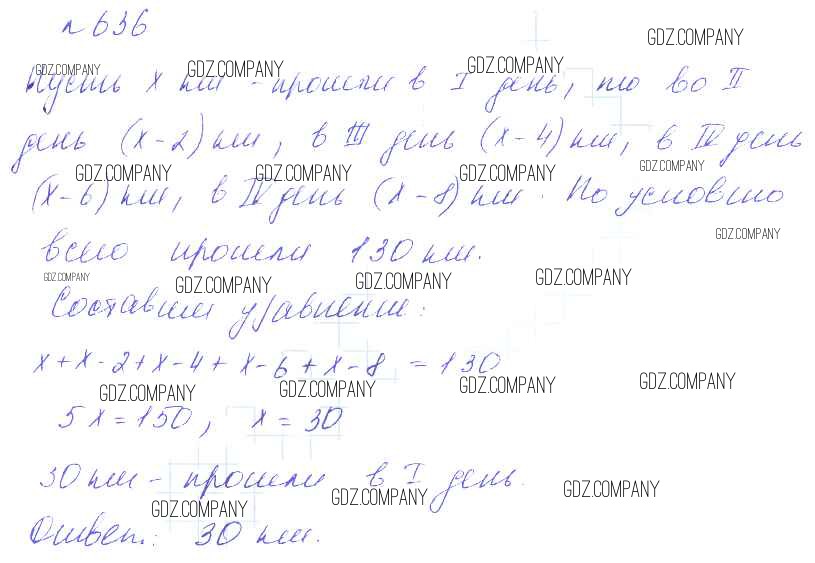 № 636
GDZ.COMPANY
GDZ.COMPANY GDZ.COMPANY GDZ.COMPANY
Пусть x км - прошли в I день, то во II
день (x-2) км, в III день (x-4) км, в IV день
GDZ.COMPANY GDZ.COMPANY GDZ.COMPANY GDZ.COMPANY
(x-6) км, в IV день (x-8) км. По условию
GDZ.COMPANY
всего прошли 130 км.
GDZ.COMPANY GDZ.COMPANY GDZ.COMPANY GDZ.COMPANY
Составим уравнение:
x+x-2+x-4+x-6+x-8 = 130
GDZ.COMPANY GDZ.COMPANY GDZ.COMPANY GDZ.COMPANY
5x=150, x=30
30 км - прошли в I день.
GDZ.COMPANY GDZ.COMPANY GDZ.COMPANY
Ответ: 30 км.